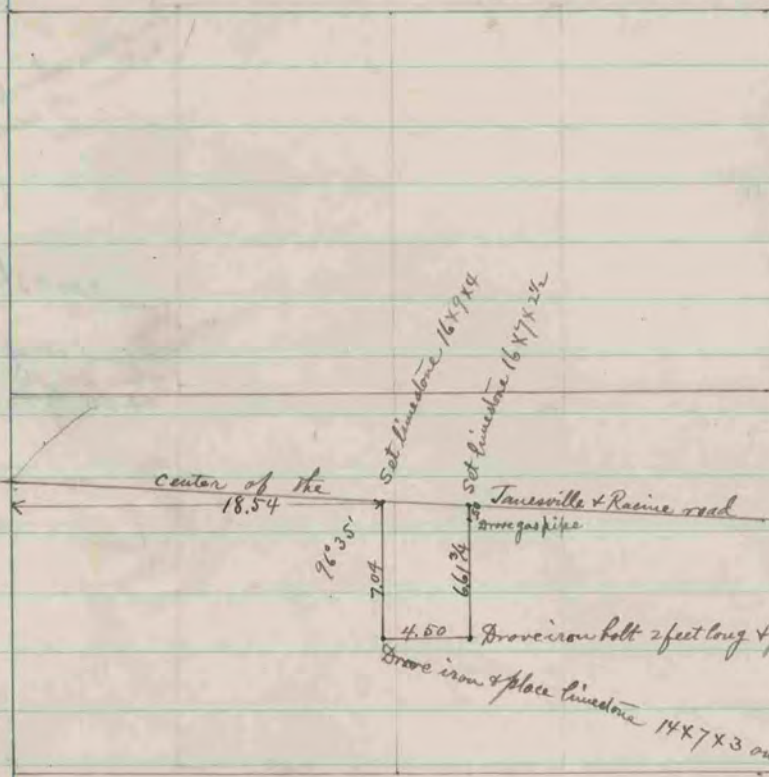 Set limestone 16X9X4
Set limestone 16X7X2½
Center of the
Janesville & Racine road
18.54
.50
Drove gas pipe
96° 35'
7.04
6.61¾
4.50
Drove iron bolt 2 feet long &
Drove iron & place limestone 14X7X3 on